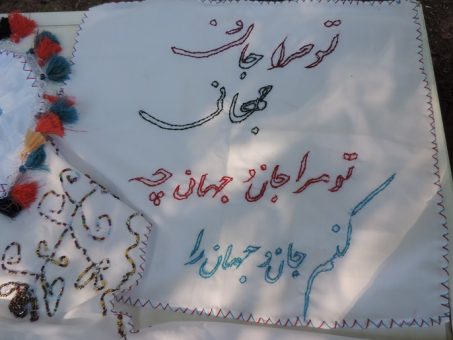 تو مرا جان و
جهانی
تو مرا جان و جهان چه
کنم جان و جهان را